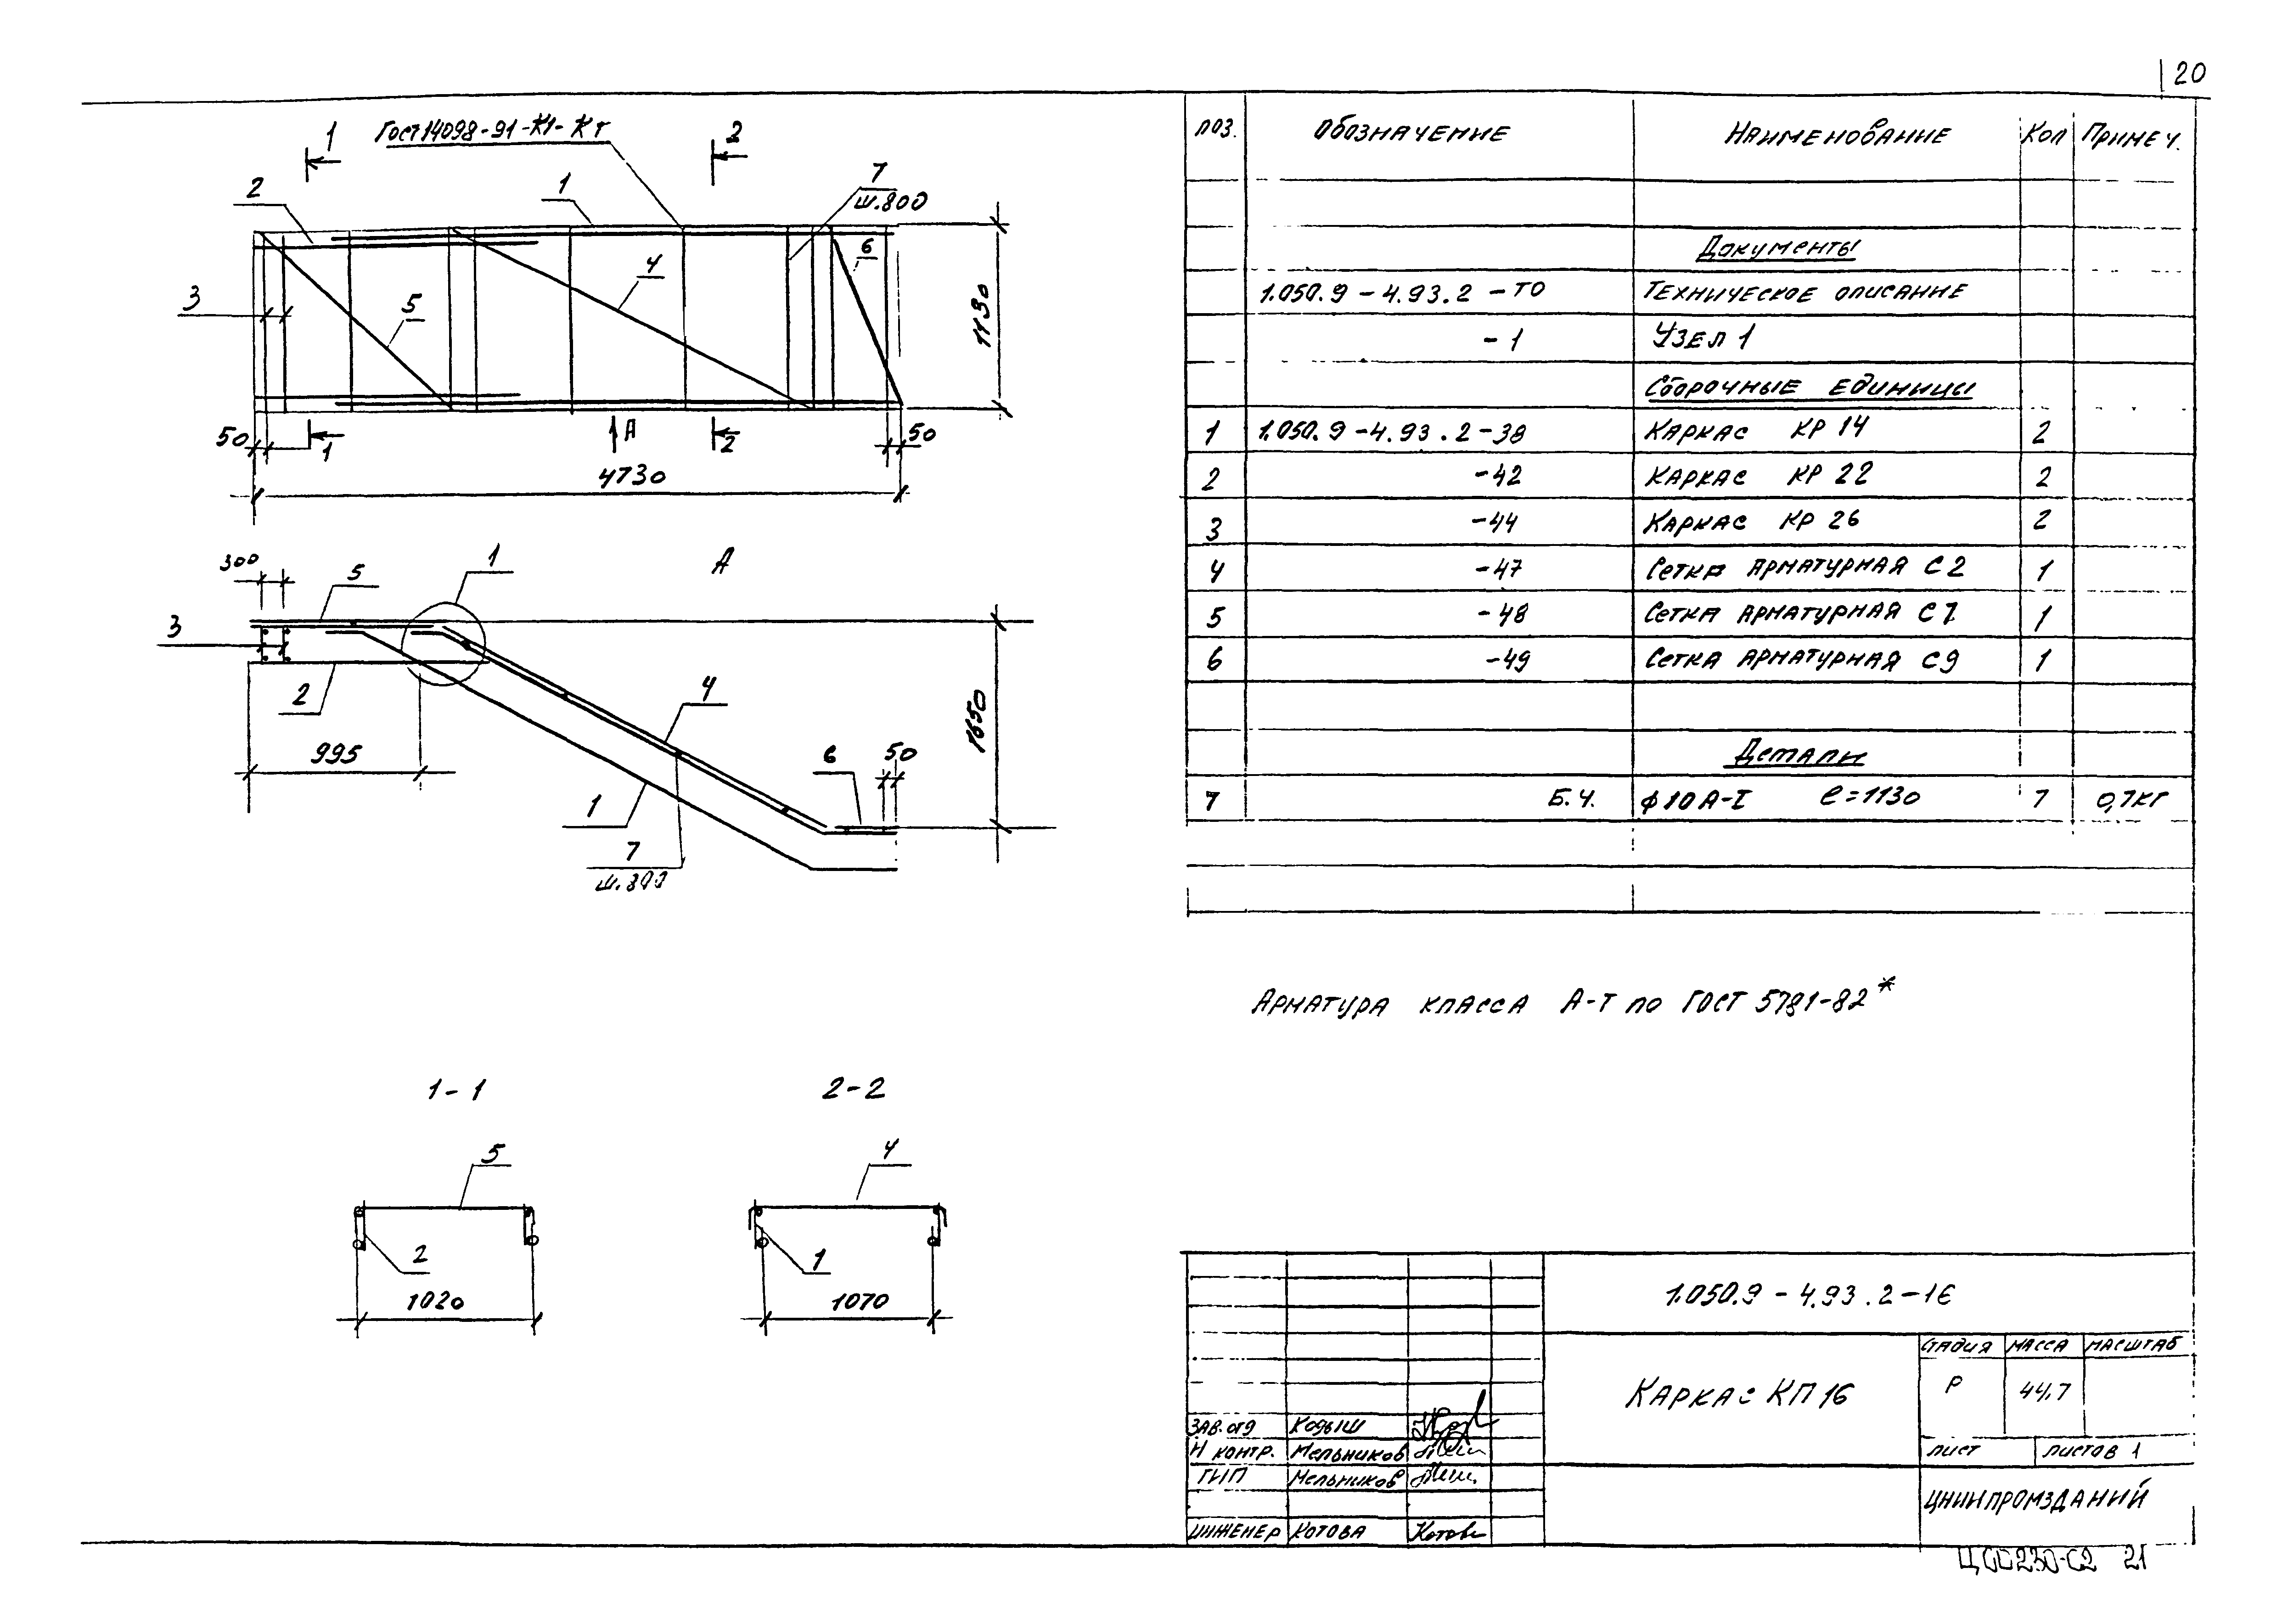 20
1
ГОСТ 14098-91-К1-Кт
2
7
ш.800
2
1
6
4
3
5
1130
50
1
А
2
50
4730
А
300
5
1
3
2
4
1650
995
6
50
1
7
ш.800
1-1
2-2
5
4
2
1
1020
1070
поз. Обозначение Наименование Кол Примеч.
Документы
1.050.9-4.93.2-ТО Техническое описание
-1 Узел 1
Сборочные единицы
1 1.050.9-4.93.2-38 Каркас КР 14 2
2 -42 Каркас КР 22 2
3 -44 Каркас КР 26 2
4 -47 Сетка арматурная С2 1
5 -48 Сетка арматурная С7 1
6 -49 Сетка арматурная С9 1
Детали
7 Б.Ч. ϕ10А-I ℓ=1130 7 0,7кг
Арматура класса А-I по ГОСТ 5781-82*
1.050.9-4.93.2-16
Каркас КП16
стадия масса масштаб
Р 44,7
лист листов 1
ЦНИИПРОМЗДАНИЙ
Зав. отд Кодыш
Н контр. Мельников
ГИП Мельников
Инженер Котова Котова
Ц00230-02 21